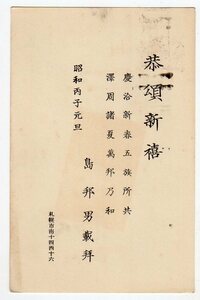 恭頌新禧
慶洽新春五族所共
澤周諸夏萬邦乃和
昭和丙子元旦
島邦男載拜
札幌市南十四西十六